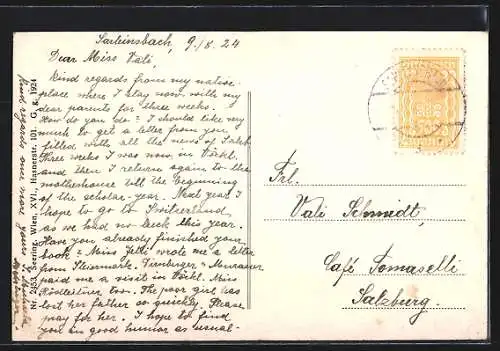 Sarleinsbach, 9./8. 24
Dear Miss Vali,
Kind regards from my native-
place where I stay now with my
dear parents for three weeks.
How do you do? I should take very
much to get a letter from your
filled with all the news of
Three weeks I was now in Vökl.
and then I return again to the
motherhouse till the beginning
of the scholar-year. Next year I
hope to go to Switzerland,
as we had no luck this year.
Have you already finished your
book? Miss Jetti wrote me a letter
from Steiermark. &
paid me a visit in Vökl. Miss
Köstleitner too. The poor girl has
lost her father so quickly. Please
pay for her. I hope to find
you in good humor as usual-
kind regards one more yours
Nr. 2453. Seering, Wien, XVI., Hasnerstr. 101. G. g. 1924
Frl.
Vali Schmidt,
Café Tomaselli
Salzburg.